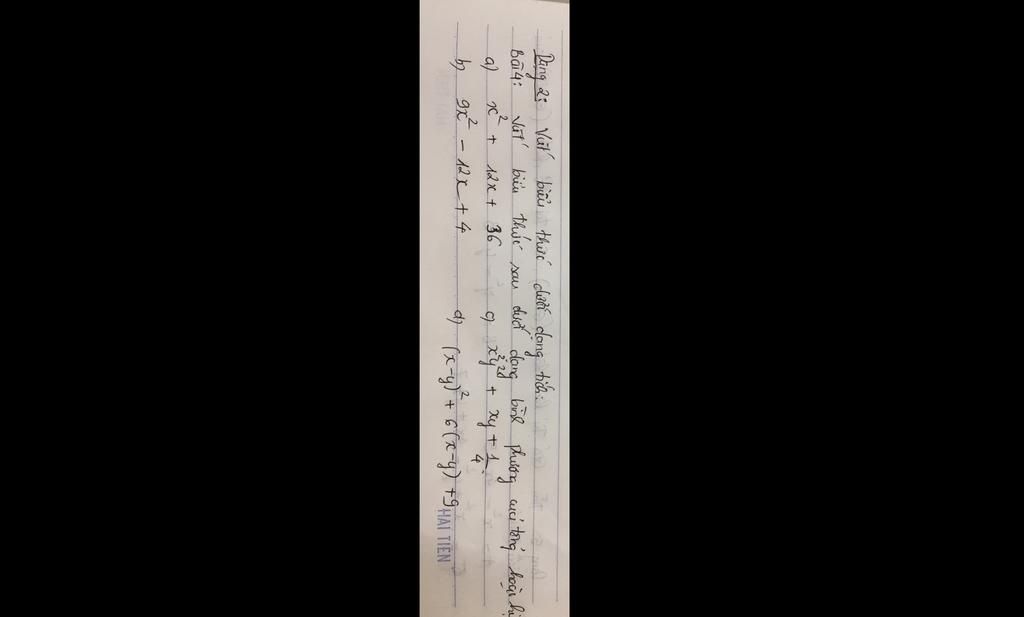 Dạng 2: Viết biểu thức dưới dạng tích:
Bài 4: Viết biểu thức sau dưới dạng bình phương của tổng hoặc hi
a) x² + 12x + 36 c) x²y² + xy + 1/4
b) 9x² - 12x + 4 d) (x-y)² + 6(x-y) + 9
HẢI TIẾN